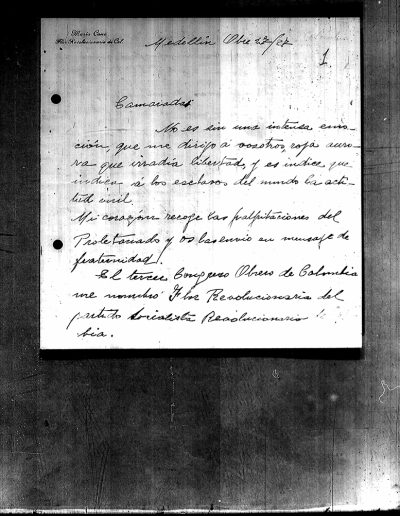 María Cano
Flor Revolucionaria de Col.
Medellín Obre 22/27
1
Camaradas
No es sin una intensa emo-
ción, que me dirijo á vosotros, roja auro-
ra que irradia libertad, y es indice que
indica á los esclavos del mundo la acti-
tud viril.
Mi corazón recoge las palpitaciones del
Proletariado y os las envio en mensage de
fraternidad.
El tercer Congreso Obrero de Colombia
me nombró Flor Revolucionaria del
partido Socialista Revolucionario
bia.